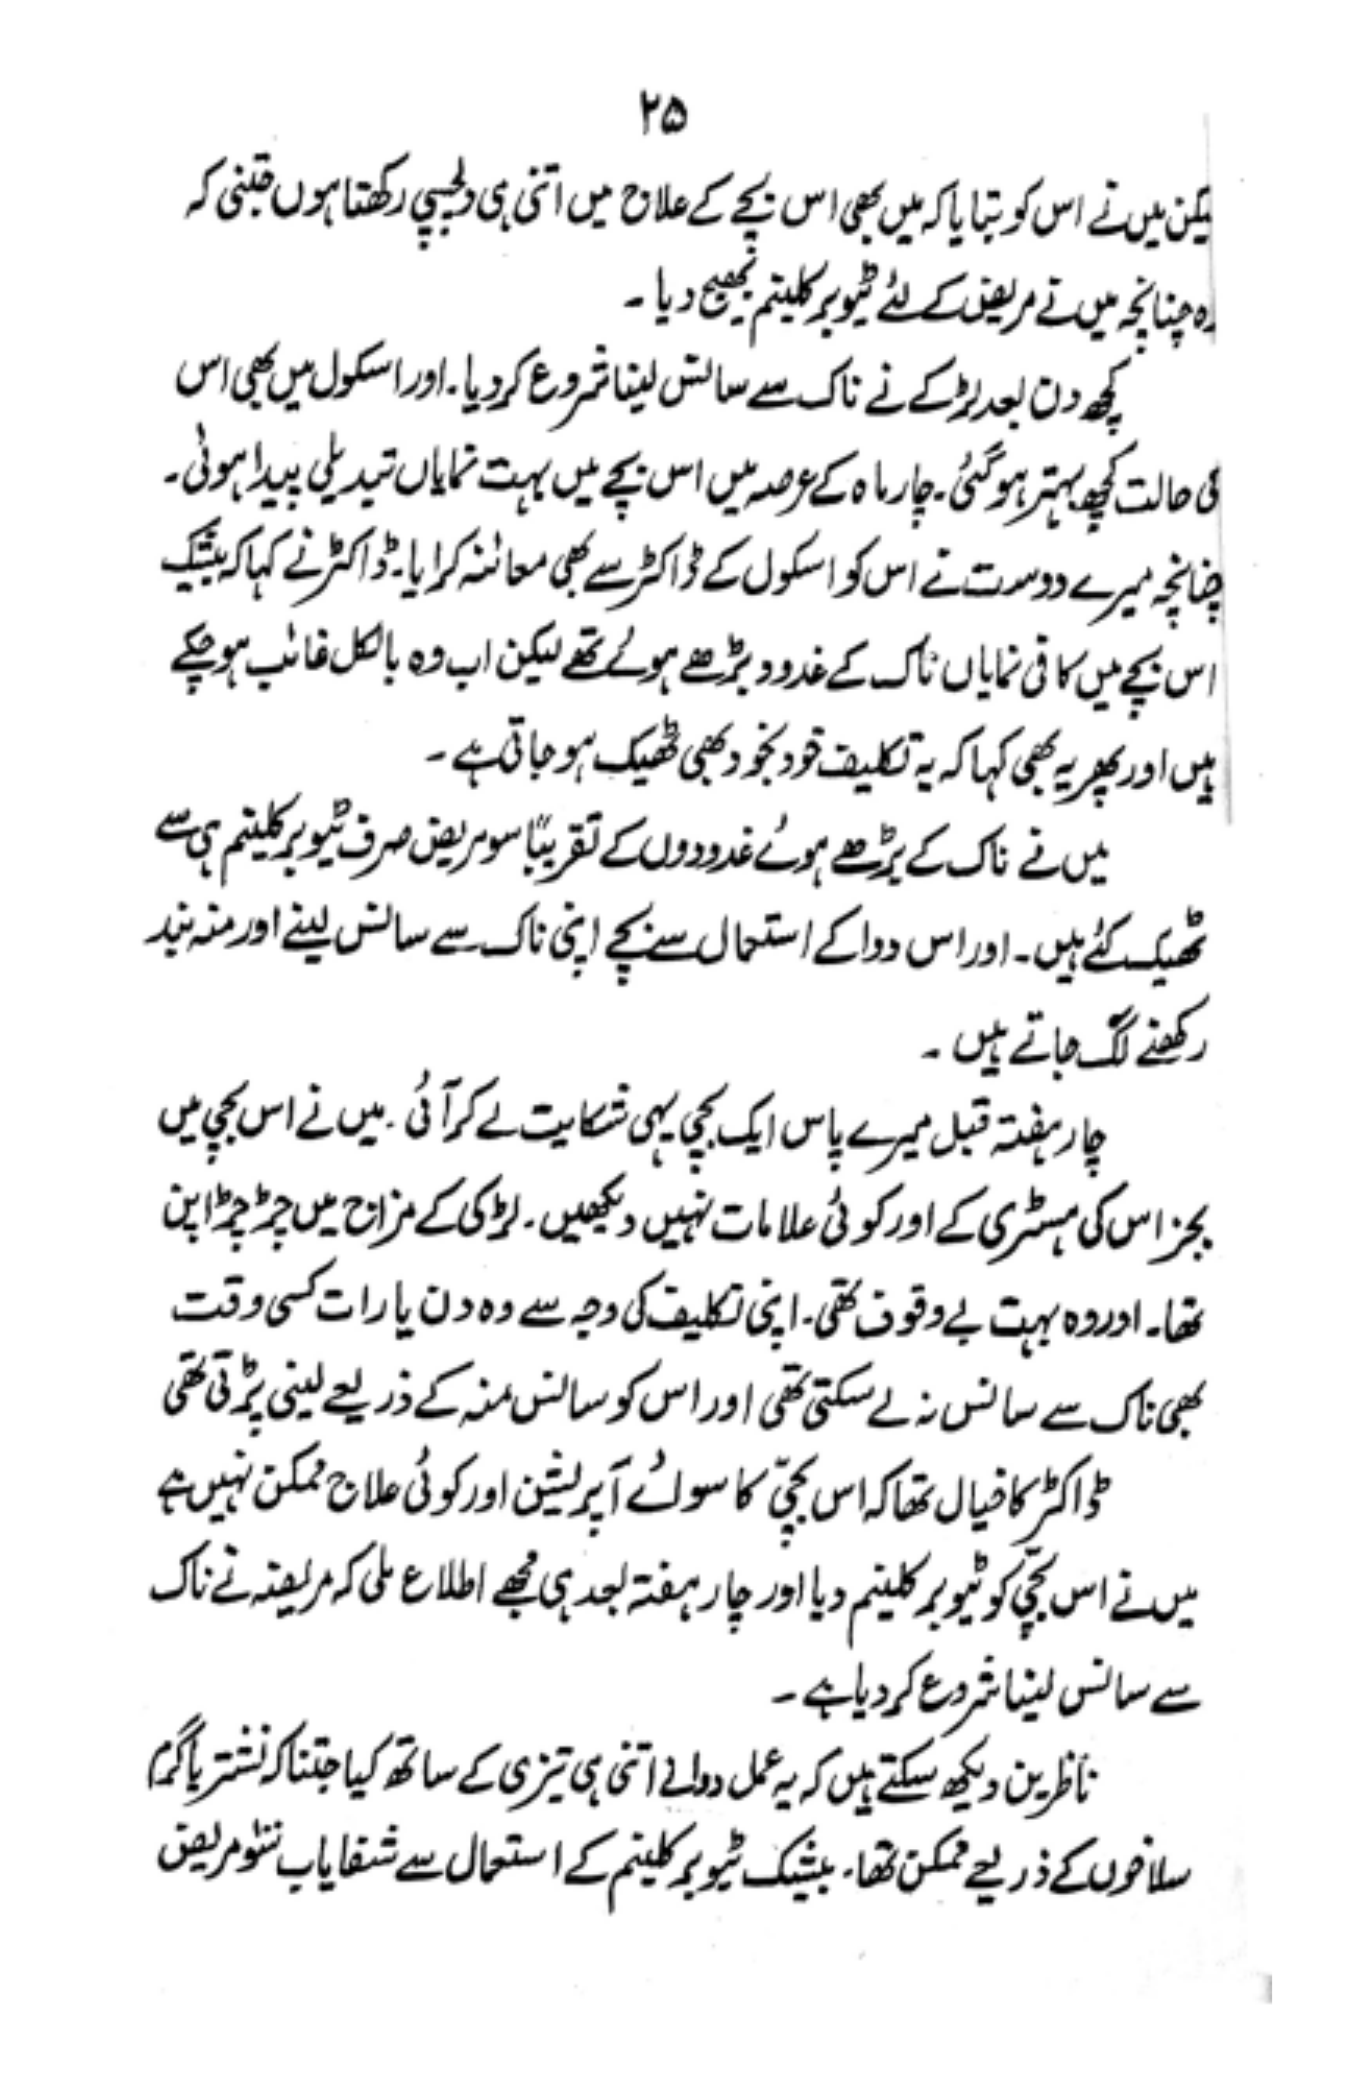 ۲۵
لیکن میں نے اس کو بتایا کہ میں بھی اس بچے کے علاج میں اتنی ہی دلچسپی رکھتا ہوں جتنی کہ
وہ چنانچہ میں نے مریض کے لئے ٹیوبر کلینم بھیج دیا ۔
کچھ دن بعد لڑکے نے ناک سے سانس لینا شروع کر دیا ۔ اور اسکول میں بھی اس
کی حالت کچھ بہتر ہو گئی ۔ چار ماہ کے عرصہ میں اس بچے میں بہت نمایاں تبدیلی پیدا ہوئی ۔
چنانچہ میرے دوست نے اس کو اسکول کے ڈاکٹر سے بھی معائنہ کرایا ۔ ڈاکٹر نے کہا کہ بیشک
اس بچے میں کافی نمایاں ناک کے غدود بڑھے ہوئے تھے لیکن اب وہ بالکل غائب ہو چکے
ہیں اور پھر یہ بھی کہا کہ یہ تکلیف خود بخود بھی ٹھیک ہو جاتی ہے ۔
میں نے ناک کے بڑھے ہوئے غدودوں کے تقریباً سو مریض صرف ٹیوبر کلینم ہی سے
ٹھیک کئے ہیں ۔ اور اس دوا کے استعمال سے بچے اپنی ناک سے سانس لینے اور منہ بند
رکھنے لگ جاتے ہیں ۔
چار ہفتہ قبل میرے پاس ایک بچی یہی شکایت لے کر آئی ۔ میں نے اس بچی میں
بجز اس کی ہسٹری کے اور کوئی علامات نہیں دیکھیں ۔ لڑکی کے مزاج میں چڑچڑا پن
تھا ۔ اور وہ بہت بے وقوف تھی ۔ اپنی تکلیف کی وجہ سے وہ دن یا رات کسی وقت
بھی ناک سے سانس نہ لے سکتی تھی اور اس کو سانس منہ کے ذریعے لینی پڑتی تھی
ڈاکٹر کا خیال تھا کہ اس بچی کا سوائے آپریشن اور کوئی علاج ممکن نہیں ہے
میں نے اس بچی کو ٹیوبر کلینم دیا اور چار ہفتہ بعد ہی مجھے اطلاع ملی کہ مریضہ نے ناک
سے سانس لینا شروع کر دیا ہے ۔
ناظرین دیکھ سکتے ہیں کہ یہ عمل دوا نے اتنی ہی تیزی کے ساتھ کیا جتنا کہ نشتر یا گرم
سلاخوں کے ذریعے ممکن تھا ۔ بیشک ٹیوبر کلینم کے استعمال سے شفایاب ننّو مریض